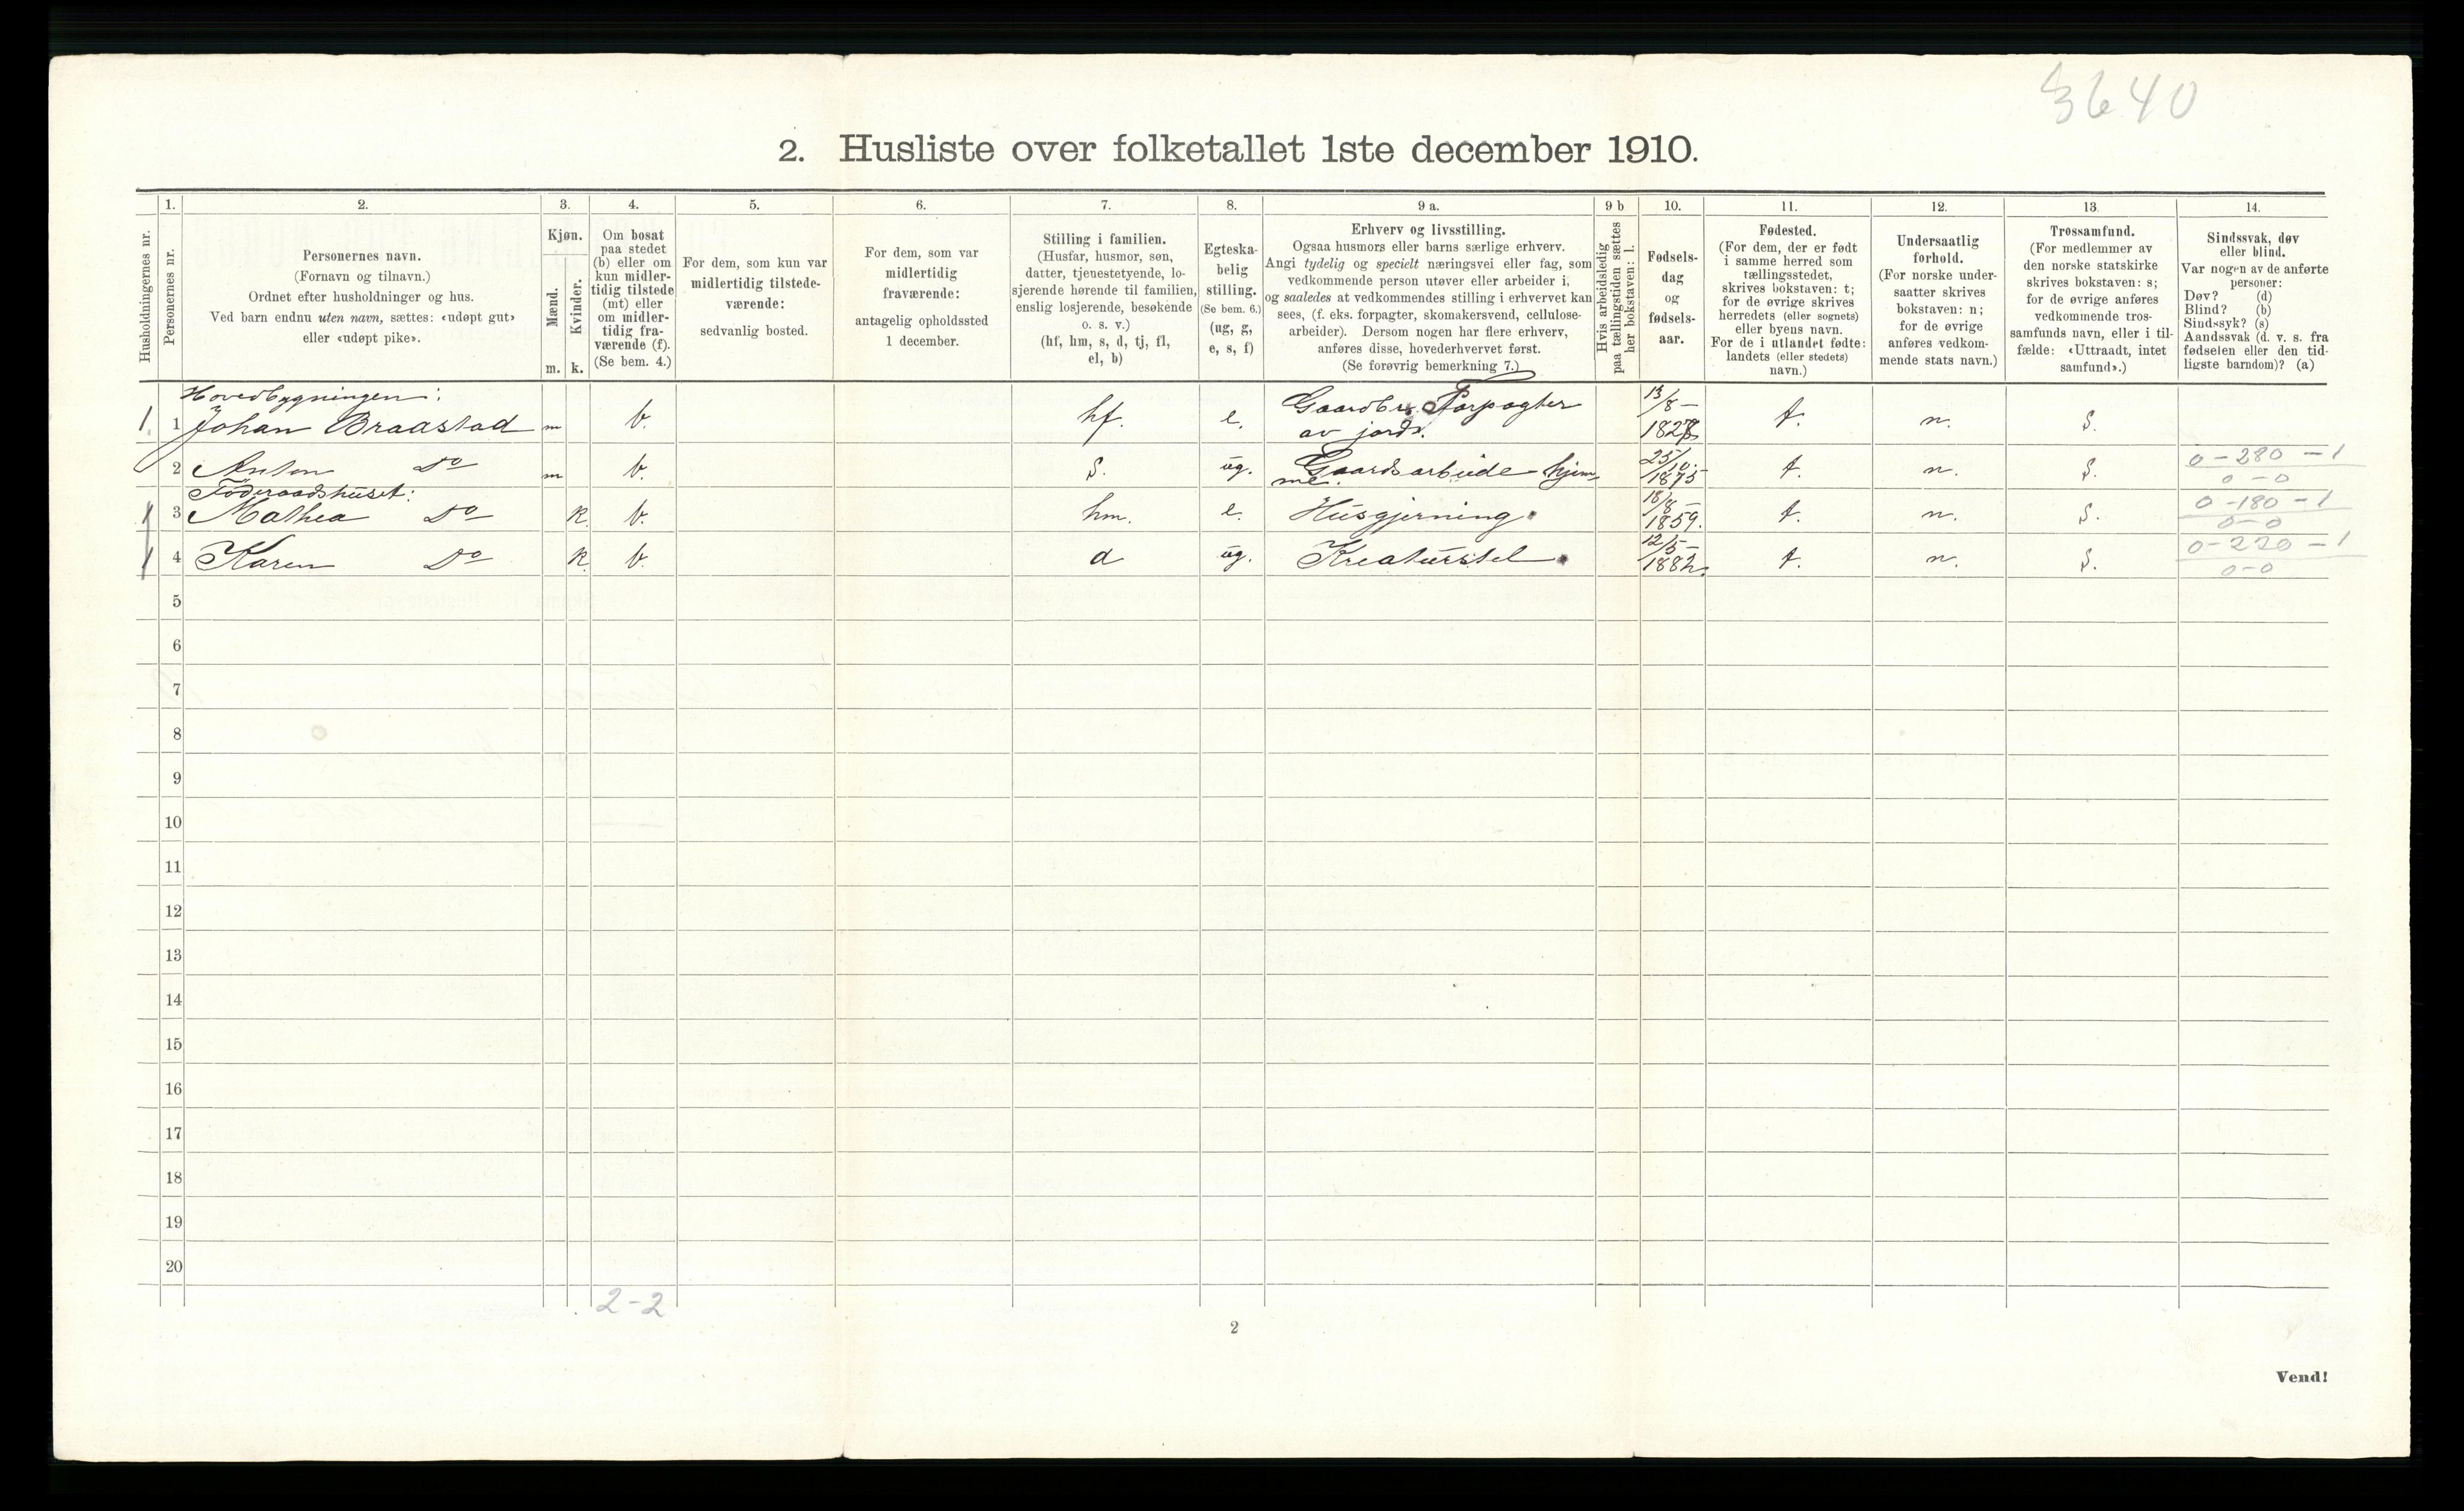 3640
2. Husliste over folketallet 1ste december 1910.
1. 2. 3. 4. 5. 6. 7. 8. 9 a. 9 b 10. 11. 12. 13. 14.
Husholdningernes nr.
Personernes nr.
Personernes navn.
(Fornavn og tilnavn.)
Ordnet efter husholdninger og hus.
Ved barn endnu uten navn, sættes: «udøpt gut»
eller «udøpt pike».
Kjøn.
Mænd.
Kvinder.
m. k.
Om bosat
paa stedet
(b) eller om
kun midler-
tidig tilstede
(mt) eller
om midler-
tidig fra-
værende (f).
(Se bem. 4.)
For dem, som kun var
midlertidig tilstede-
værende:
sedvanlig bosted.
For dem, som var
midlertidig
fraværende:
antagelig opholdssted
1 december.
Stilling i familien.
(Husfar, husmor, søn,
datter, tjenestetyende, lo-
sjerende hørende til familien,
enslig losjerende, besøkende
o. s. v.)
(hf, hm, s, d, tj, fl,
el, b)
Egteska-
belig
stilling.
(Se bem. 6.)
(ug, g,
e, s, f)
Erhverv og livsstilling.
Ogsaa husmors eller barns særlige erhverv.
Angi tydelig og specielt næringsvei eller fag, som
vedkommende person utøver eller arbeider i,
og saaledes at vedkommendes stilling i erhvervet kan
sees, (f. eks. forpagter, skomakersvend, cellulose-
arbeider). Dersom nogen har flere erhverv,
anføres disse, hovederhvervet først.
(Se forøvrig bemerkning 7.)
Hvis arbeidsledig
paa tællingstiden sættes
her bokstaven: l.
Fødsels-
dag
og
fødsels-
aar.
Fødested.
(For dem, der er født
i samme herred som
tællingsstedet,
skrives bokstaven: t;
for de øvrige skrives
herredets (eller sognets)
eller byens navn.
For de i utlandet fødte:
landets (eller stedets)
navn.)
Undersaatlig
forhold.
(For norske under-
saatter skrives
bokstaven: n;
for de øvrige
anføres vedkom-
mende stats navn.)
Trossamfund.
(For medlemmer av
den norske statskirke
skrives bokstaven: s;
for de øvrige anføres
vedkommende tros-
samfunds navn, eller i til-
fælde: «Uttraadt, intet
samfund».)
Sindssvak, døv
eller blind.
Var nogen av de anførte
personer:
Døv? (d)
Blind? (b)
Sindssyk? (s)
Aandssvak (d. v. s. fra
fødselen eller den tid-
ligste barndom)? (a)
Hovedbygningen:
1 1 Johan Braastad m b. hf. e. Gaardbr. Forpagter av jords. 13/8 - 1828 t. n. s.
2 Anton Do m b. s. ug. Gaardsarbeide hjemme. 25/10. 1875 t. n. s. 0-280-1 0-0
Föderaadshuset:
1 3 Mathea Do k. b. hm. e. Husgjerning 18/8 - 1859. t. n. s. 0-180-1 0-0
1 4 Karen Do k. b. d ug. Kreaturstel 12/5 - 1882. t. n. s. 0-220-1 0-0
5
6
7
8
9
10
11
12
13
14
15
16
17
18
19
20
2-2
2
Vend!